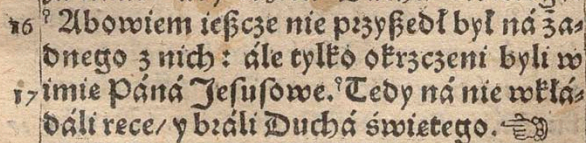 16 Abowiem ießcże nie przyßedł był ná ża-
dnego z nich: ále tylko okrzcżeni byli w
17 imie Páná Jesusowe. Tedy ná nie wkłá-
dáli rece/ y bráli Duchá świetego.